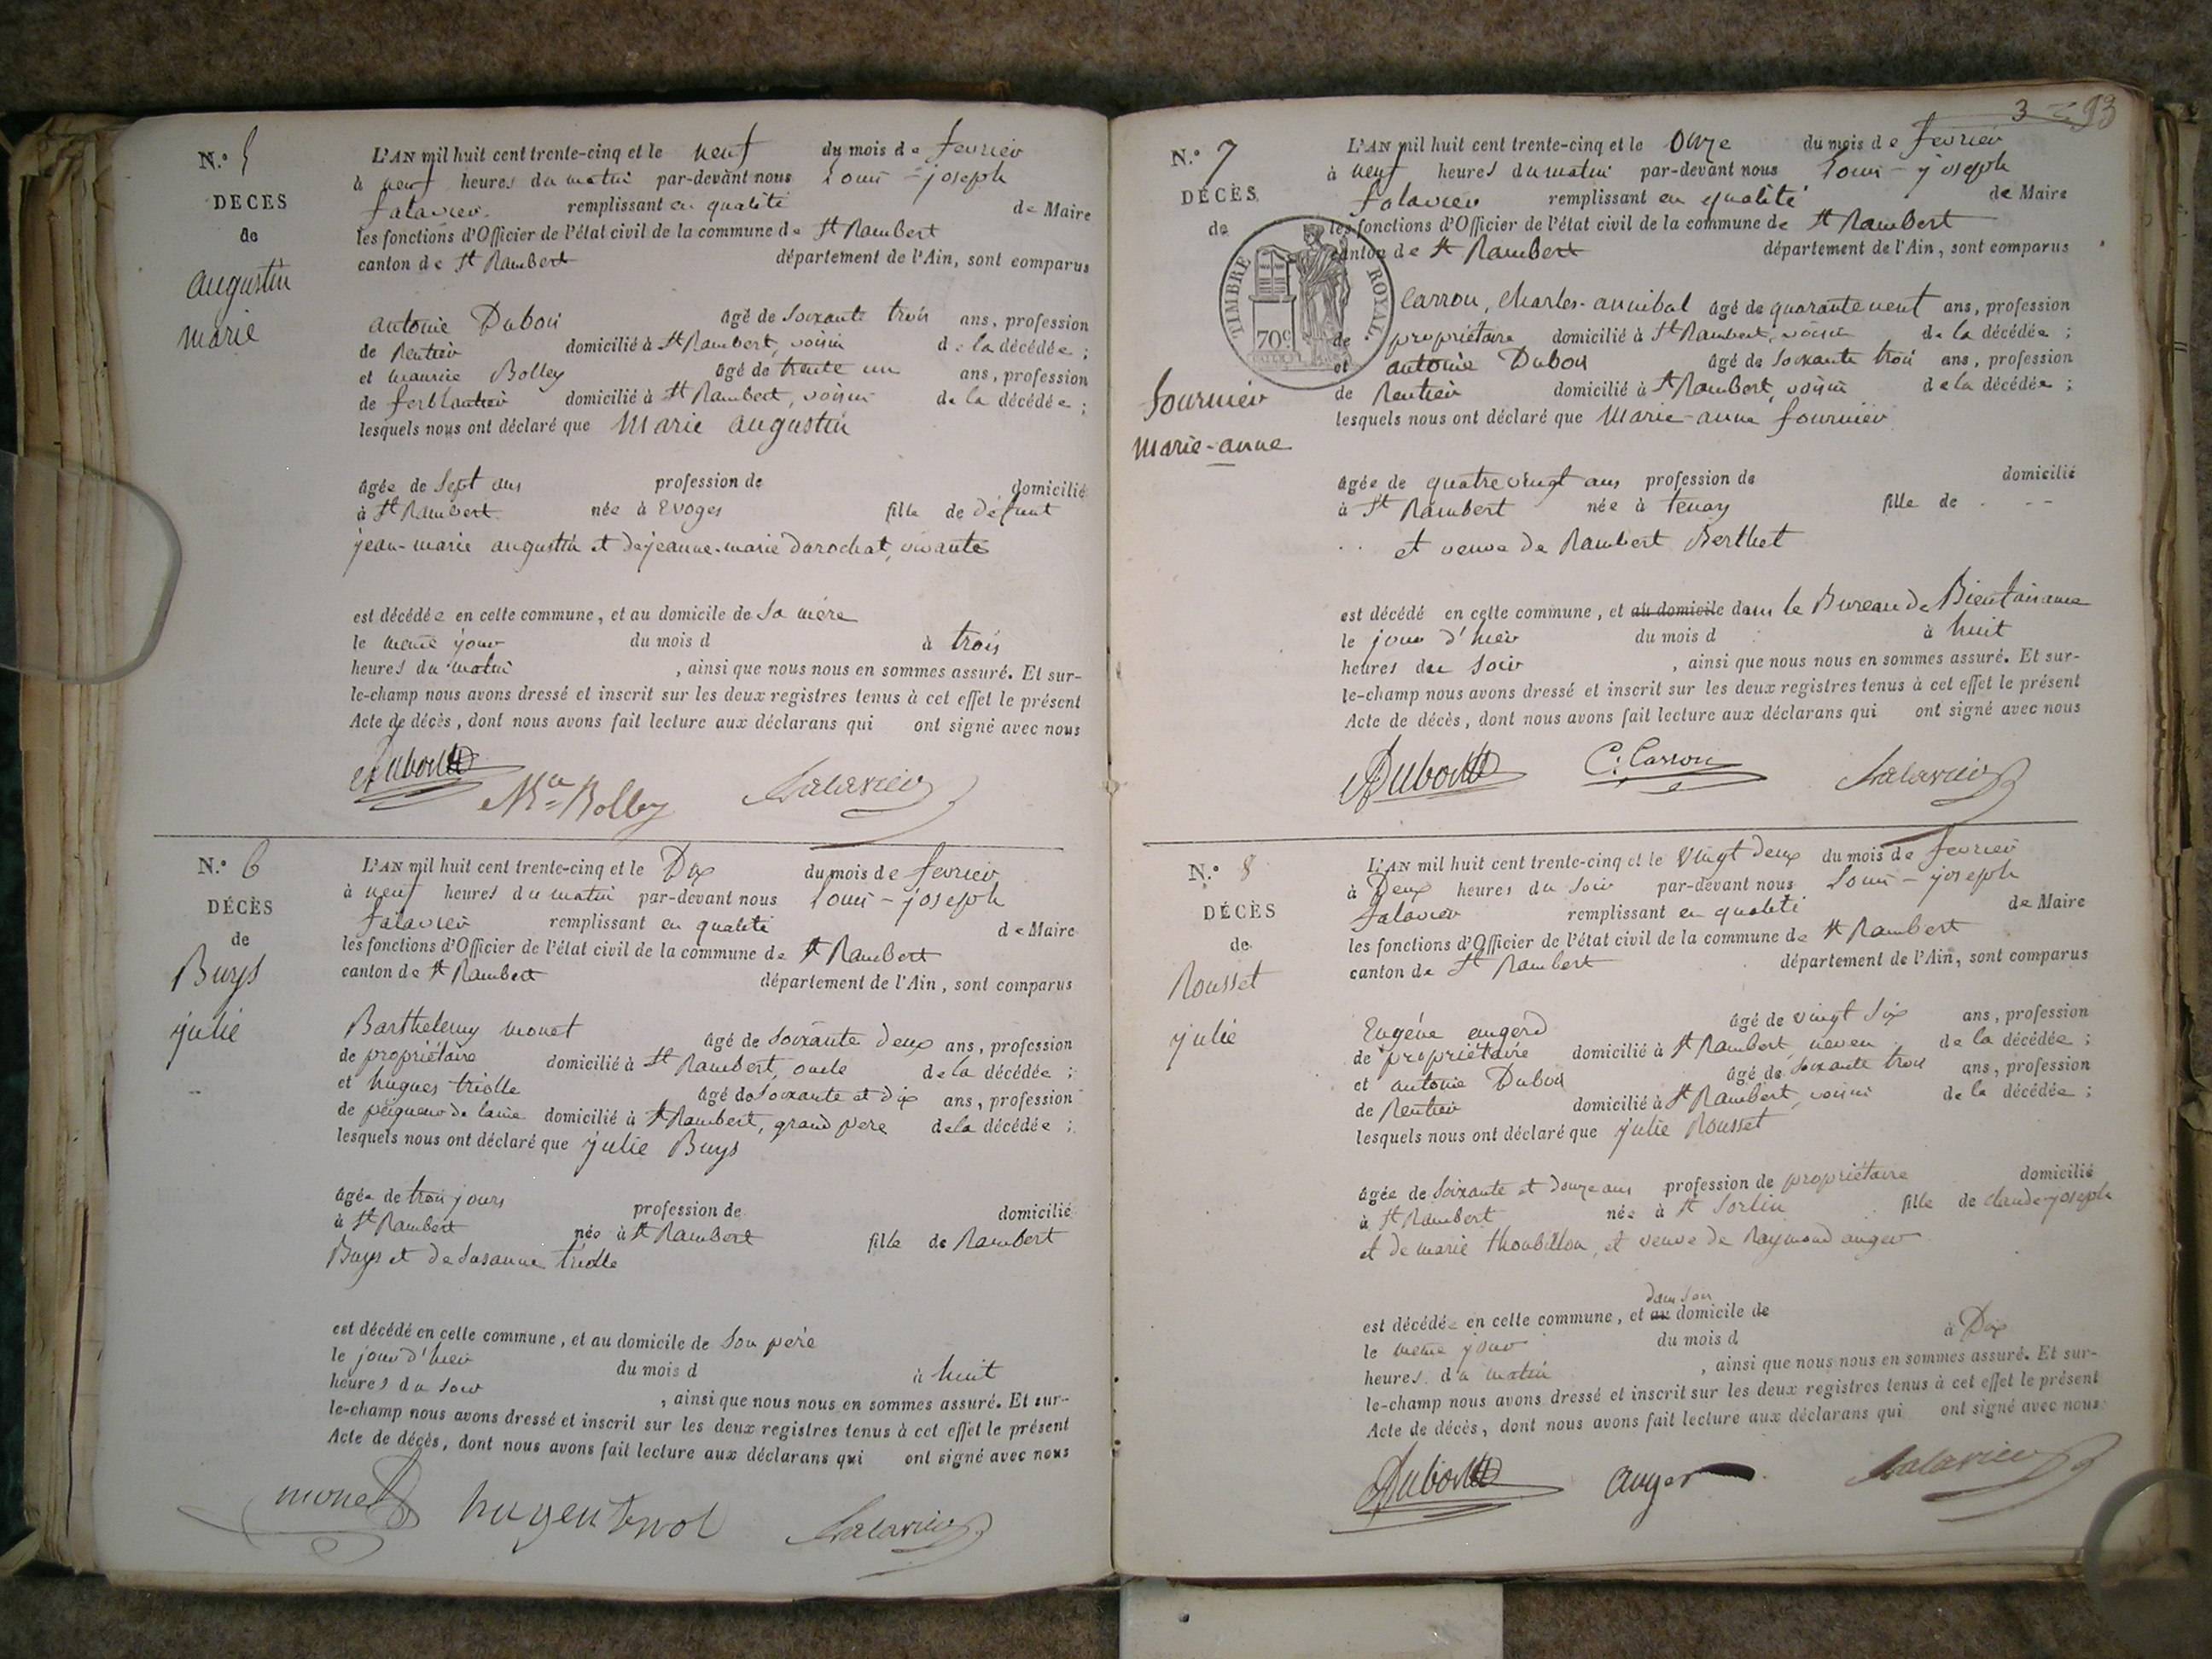 N.° 5
DECES
de
augustin
marie
L'AN mil huit cent trente-cinq et le neuf du mois de fevrier
à neuf heures du matin par-devant nous Louis-joseph
falavier remplissant en qualité de Maire
les fonctions d'Officier de l'état civil de la commune de St Rambert
canton de St Rambert département de l'Ain, sont comparus
antoine Dubois agé de soixante trois ans, profession
de Rentier domicilié à St Rambert, voisin de la décédée ;
et maurice Bolley agé de trente un ans, profession
de ferblantier domicilié à St Rambert, voisin de la décédée ;
lesquels nous ont déclaré que Marie augustin
agée de Sept ans profession de domicilié
à St Rambert née à Evoges fille de défunt
jean-marie augustin et de jeanne-marie darochat, vivante
est décédée en cette commune, et au domicile de sa mère
le meme jour du mois d à trois
heures du matin , ainsi que nous nous en sommes assuré. Et sur-
le-champ nous avons dressé et inscrit sur les deux registres tenus à cet effet le présent
Acte de décès, dont nous avons fait lecture aux déclarans qui ont signé avec nous
Dubois Mce Bolley falavier
N.° 6
DÉCÈS
de
Buys
julie
L'AN mil huit cent trente-cinq et le Dix du mois de fevrier
à neuf heures du matin par-devant nous Louis-joseph
falavier remplissant en qualité de Maire
les fonctions d'Officier de l'état civil de la commune de St Rambert
canton de St Rambert département de l'Ain, sont comparus
Barthelemy monet agé de soixante deux ans, profession
de propriétaire domicilié à St Rambert, oncle de la décédée ;
et hugues triolle agé de soixante et dix ans, profession
de peigneur de laine domicilié à St Rambert, grand pere de la décédée ;
lesquels nous ont déclaré que julie Buys
agée de trois jours profession de domicilié
à St Rambert née à St Rambert fille de Rambert
Buys et de Susanne triolle
est décédé en cette commune, et au domicile de son père
le jour d'hier du mois d à huit
heures du soir , ainsi que nous nous en sommes assuré. Et sur-
le-champ nous avons dressé et inscrit sur les deux registres tenus à cet effet le présent
Acte de décès, dont nous avons fait lecture aux déclarans qui ont signé avec nous
monet falavier
3 93
N.° 7
DÉCÈS
de
fournier
Marie-anne
TIMBRE ROYAL.
70c
L'AN mil huit cent trente-cinq et le Onze du mois de fevrier
à neuf heures du matin par-devant nous Louis-joseph
falavier remplissant en qualité de Maire
les fonctions d'Officier de l'état civil de la commune de St Rambert
canton de St Rambert département de l'Ain, sont comparus
Carron, Charles-annibal agé de quarante neuf ans, profession
de propriétaire domicilié à St Rambert, voisin de la décédée ;
et antoine Dubois agé de soixante trois ans, profession
de Rentier domicilié à St Rambert, voisin de la décédée ;
lesquels nous ont déclaré que Marie-anne fournier
agée de quatre vingt ans profession de domicilié
à St Rambert née à tenay fille de - -
et veuve de Rambert Berthet
est décédé en cette commune, et au domicile dans le Bureau de Bienfaisance
le jour d'hier du mois d à huit
heures du soir , ainsi que nous nous en sommes assuré. Et sur-
le-champ nous avons dressé et inscrit sur les deux registres tenus à cet effet le présent
Acte de décès, dont nous avons fait lecture aux déclarans qui ont signé avec nous
Dubois C. Carron falavier
N.° 8
DÉCÈS
de
Rousset
julie
L'AN mil huit cent trente-cinq et le Vingt deux du mois de fevrier
à Deux heures du soir par-devant nous Louis-joseph
falavier remplissant en qualité de Maire
les fonctions d'Officier de l'état civil de la commune de St Rambert
canton de St Rambert département de l'Ain, sont comparus
Eugène augerd agé de vingt six ans, profession
de propriétaire domicilié à St Rambert, neveu de la décédée ;
et antoine Dubois agé de soixante trois ans, profession
de Rentier domicilié à St Rambert, voisin de la décédée ;
lesquels nous ont déclaré que julie Rousset
agée de soixante et douze ans profession de propriétaire domicilié
à St Rambert née à St Sorlin fille de claude-joseph
et de marie thoubillon, et veuve de Raymond auger
dans son
est décédée en cette commune, et au domicile de
le meme jour du mois d à Dix
heures du matin , ainsi que nous nous en sommes assuré. Et sur-
le-champ nous avons dressé et inscrit sur les deux registres tenus à cet effet le présent
Acte de décès, dont nous avons fait lecture aux déclarans qui ont signé avec nous
Dubois auger falavier